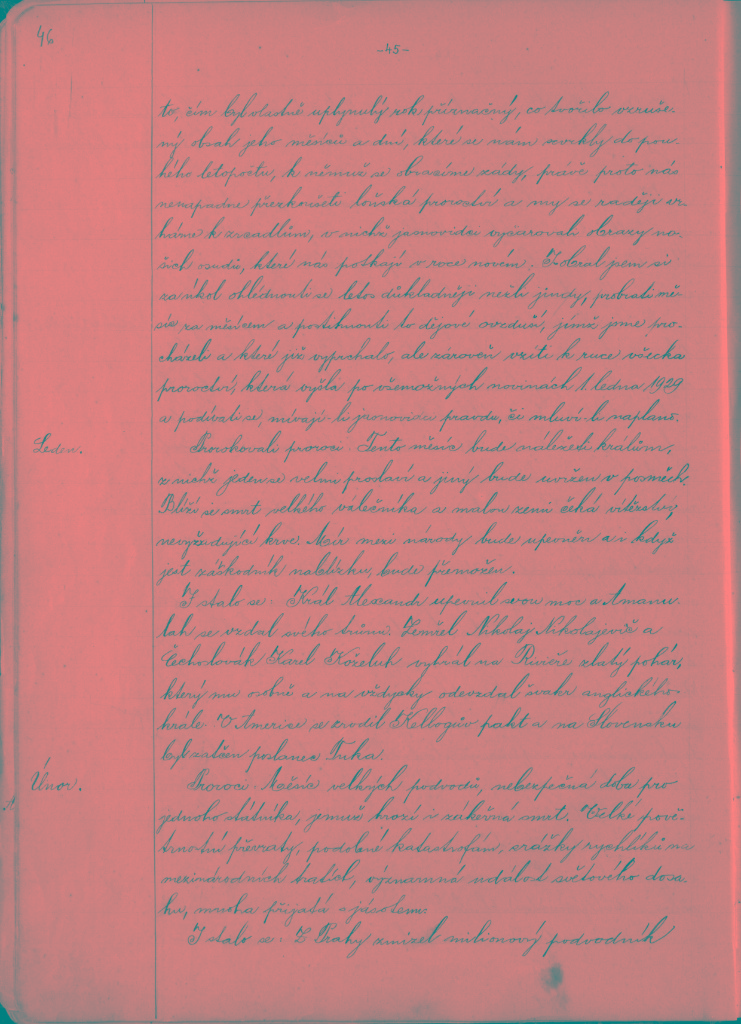 46
-45-
to, čím byl vlastně uplynulý rok příznačný, co tvořilo vzruše-
ný obsah jeho měsíců a dní, které se nám scvrkly do pou-
hého letopočtu, k němuž se obracíme zády, právě proto nás
nenapadne přezkoušeti loňská proroctví a my se raději vr-
háme k zrcadlům, v nichž jasnovidci vyčarovali obrazy na-
šich osudů, které nás potkají v roce novém. I obral jsem si
za úkol ohlédnouti se letos důkladněji nežli jindy, probrati mě-
síc za měsícem a postihnouti to dějové ovzduší, jímž jsme pro-
cházeli a které již vyprchalo, ale zároveň vzíti k ruce všecka
proroctví, která vyšla po všemožných novinách 1. ledna 1929
a podívati se, mívají-li jasnovidci pravdu, či mluví-li naplano.
Leden.
Prorokovali proroci: Tento měsíc bude náležeti králům,
z nichž jeden se velmi proslaví a jiný bude uvržen v posměch.
Blíží se smrt velkého válečníka a malou zemi čeká vítězství,
nevyžadující krve. Mír mezi národy bude upevněn a i když
jest záškodník nablízku, bude přemožen.
I stalo se: Král Alexandr upevnil svou moc a Amanu-
lah se vzdal svého trůnu. Zemřel Nikolaj Nikolajevič a
Čechoslovák Karel Koželuh vyhrál na Rivieře zlatý pohár,
který mu osobně a na vždycky odevzdal švakr anglického
krále. V Americe se zrodil Kellogův pakt a na Slovensku
byl zatčen poslanec Tuka.
Únor.
Proroci: Měsíc velkých podvodů, nebezpečná doba pro
jednoho státníka, jemuž hrozí i zákeřná smrt. Velké pově-
trnostní převraty, podobné katastrofám, srážky rychlíků na
mezinárodních tratích, významná událost světového dosa-
hu, mnoha přijatá s jásotem.
I stalo se: Z Prahy zmizel milionový podvodník